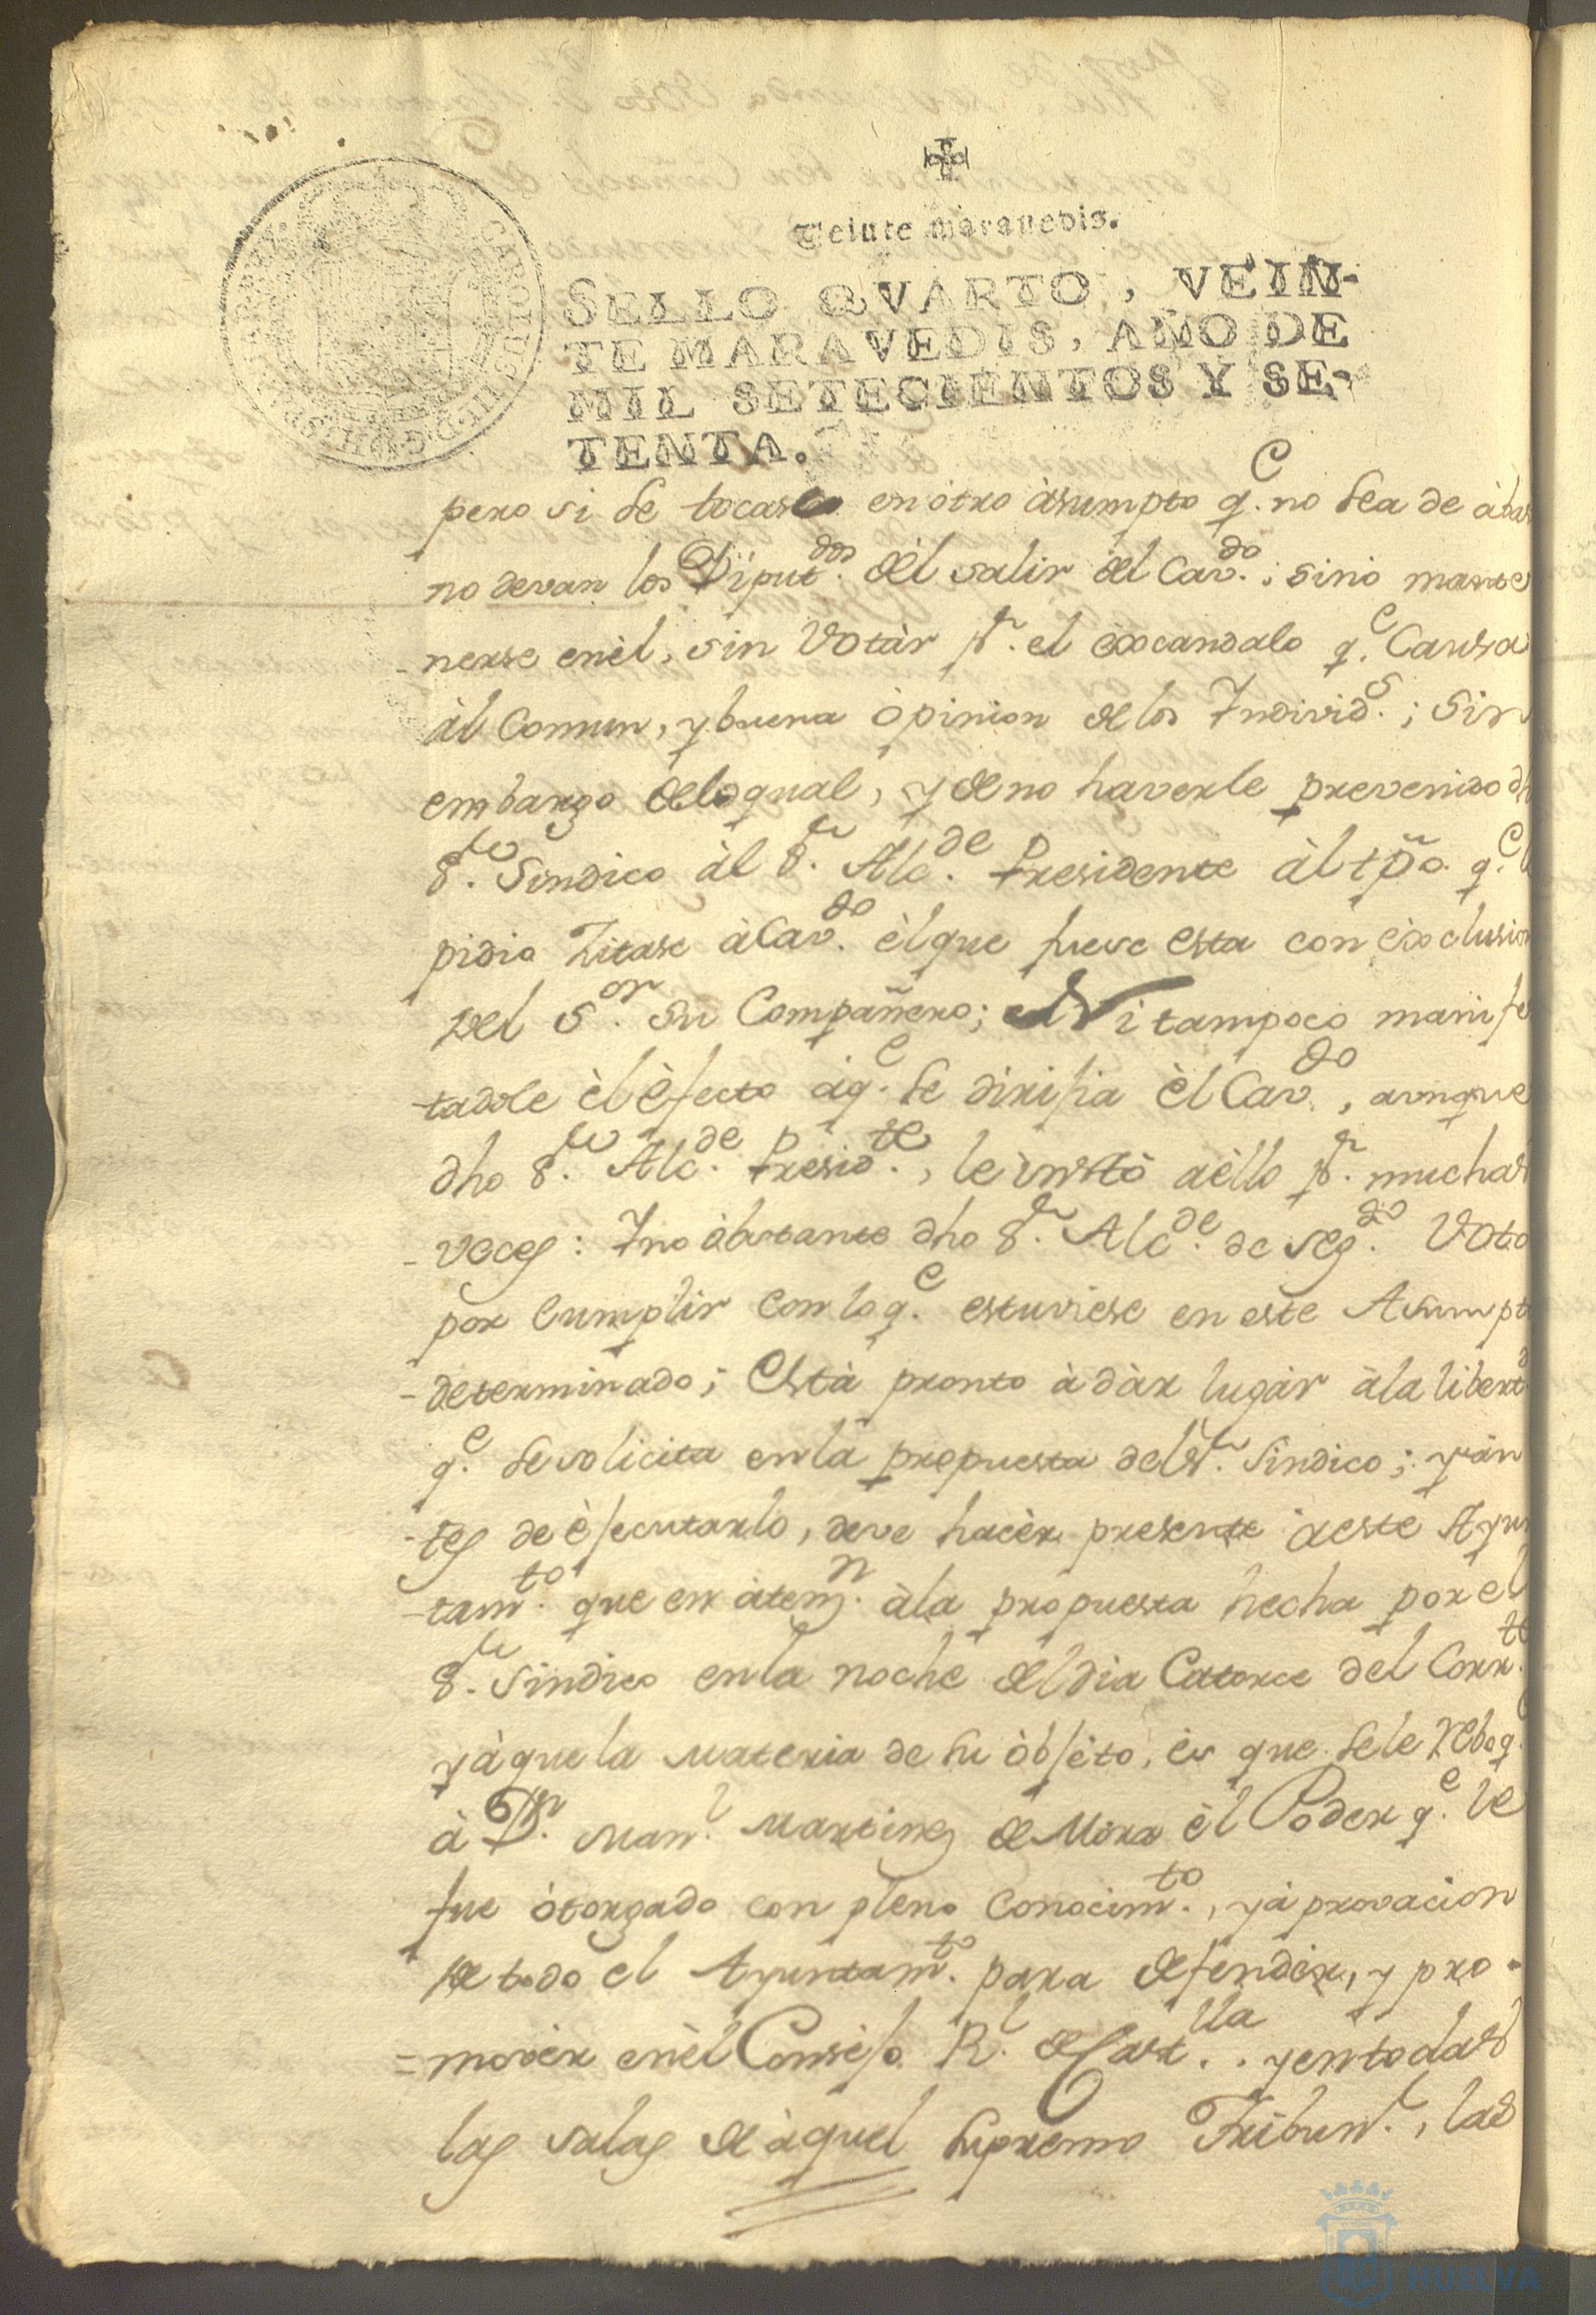 Veinte maravedis.
SELLO QVARTO, VEIN-
TE MARAVEDIS, AÑO DE
MIL SETECIENTOS Y SE-
TENTA.
pero si se tocase en otro àsumpto q.e no sea de
no devan los Diput.dos dèl salir del Cav.do; sino mante
nerse enèl, sin Votàr p.r el èxcandalo q.e Causa
àl Comun, y buena òpinion de los Individ.s; Sin
embargo delo qual, y de no haverle prevenido
S.r Sindico àl S.r Alc.de Presidente àl tpõ. q.e
pidio Zitase à Cav.do èlque fuese esta con èxclusion
del S.or su Compañero; Ni tampoco manifes
tadole èl èfecto àq.e se dirijia èl Cav.do, aunque
dho S.r Alc.de Presid.te, le instò aèllo p.r muchas
veces: Yno òbstante dho S.r Alc.de de seg.do Voto
por Cumplir con lo q.e estuviese en este Asumpto
determinado; Està pronto à dàr lugàr àla libert.d
q.e se solicita en la propuesta del S.r Sindico; yàn
tes de èjecutarlo, deve hacèr presente àeste Ayun
tam.to que en àtenz.n àla propuesta hecha por el
S.r Sindico en la noche del dia Catorce del Corr.te
yàque la materia de su òbjèto, ès que sele reboq.e
à D.n Man.l Martinez de Mora èl Poder q.e le
fue òtorgado con pleno Conocim.to, yàprovacion
de todo el Ayuntam.to para defendèr, y pro-
=movèr enèl Consejo R.l de Cast.lla. yentodas
las salas de àquel Supremo Tribun.l, las
HUELVA